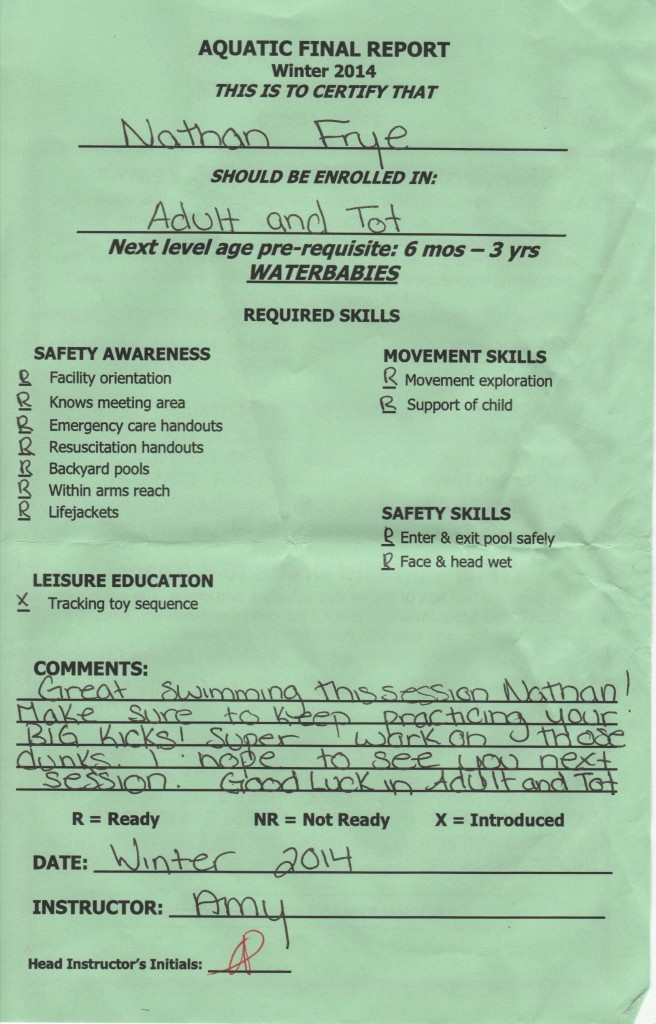 AQUATIC FINAL REPORT
Winter 2014
THIS IS TO CERTIFY THAT
Nathan Frye
SHOULD BE ENROLLED IN:
Adult and Tot
Next level age pre-requisite: 6 mos – 3 yrs
WATERBABIES
REQUIRED SKILLS
SAFETY AWARENESS
R Facility orientation
R Knows meeting area
R Emergency care handouts
R Resuscitation handouts
R Backyard pools
R Within arms reach
R Lifejackets
MOVEMENT SKILLS
R Movement exploration
R Support of child
SAFETY SKILLS
R Enter & exit pool safely
R Face & head wet
LEISURE EDUCATION
X Tracking toy sequence
COMMENTS:
Great swimming this session Nathan!
Make sure to keep practicing your
BIG Kicks! Super work on those
dunks. I hope to see you next
session. Good Luck in Adult and Tot
R = Ready NR = Not Ready X = Introduced
DATE: Winter 2014
INSTRUCTOR: Amy
Head Instructor's Initials: